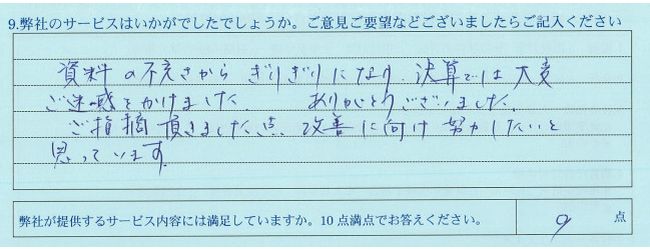 9.弊社のサービスはいかがでしたでしょうか。ご意見ご要望などございましたらご記入ください
資料の不充さからぎりぎりになり、決算では大変
ご迷惑をかけました ありがとうございました。
ご指摘頂きました点、改善に向け努力したいと
思っています。
弊社が提供するサービス内容には満足していますか。10点満点でお答えください。 9 点